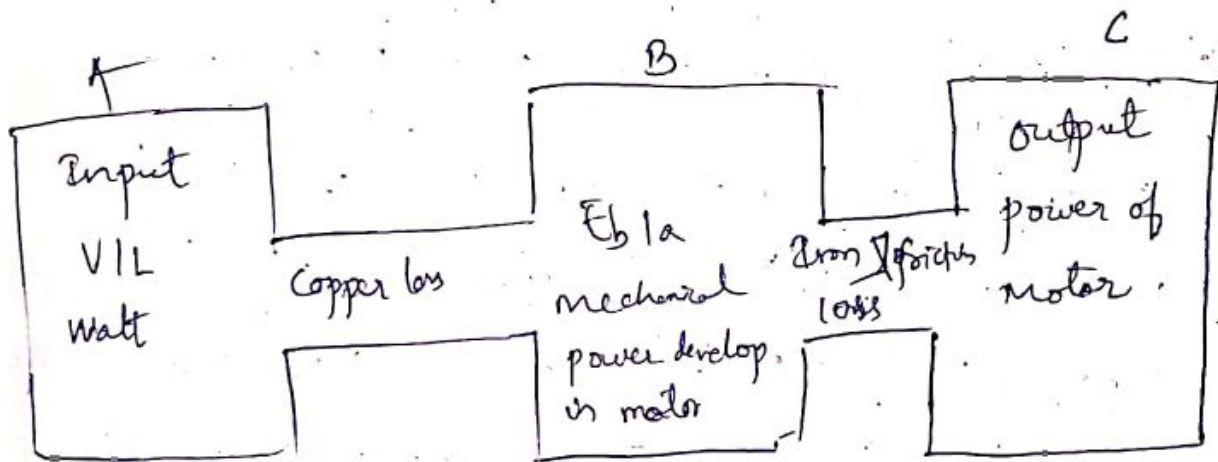 A
Input
VIL
Watt
Copper loss
B
Eb Ia
mechanical
power develop
in motor
Iron & friction
loss
C
output
power of
motor.